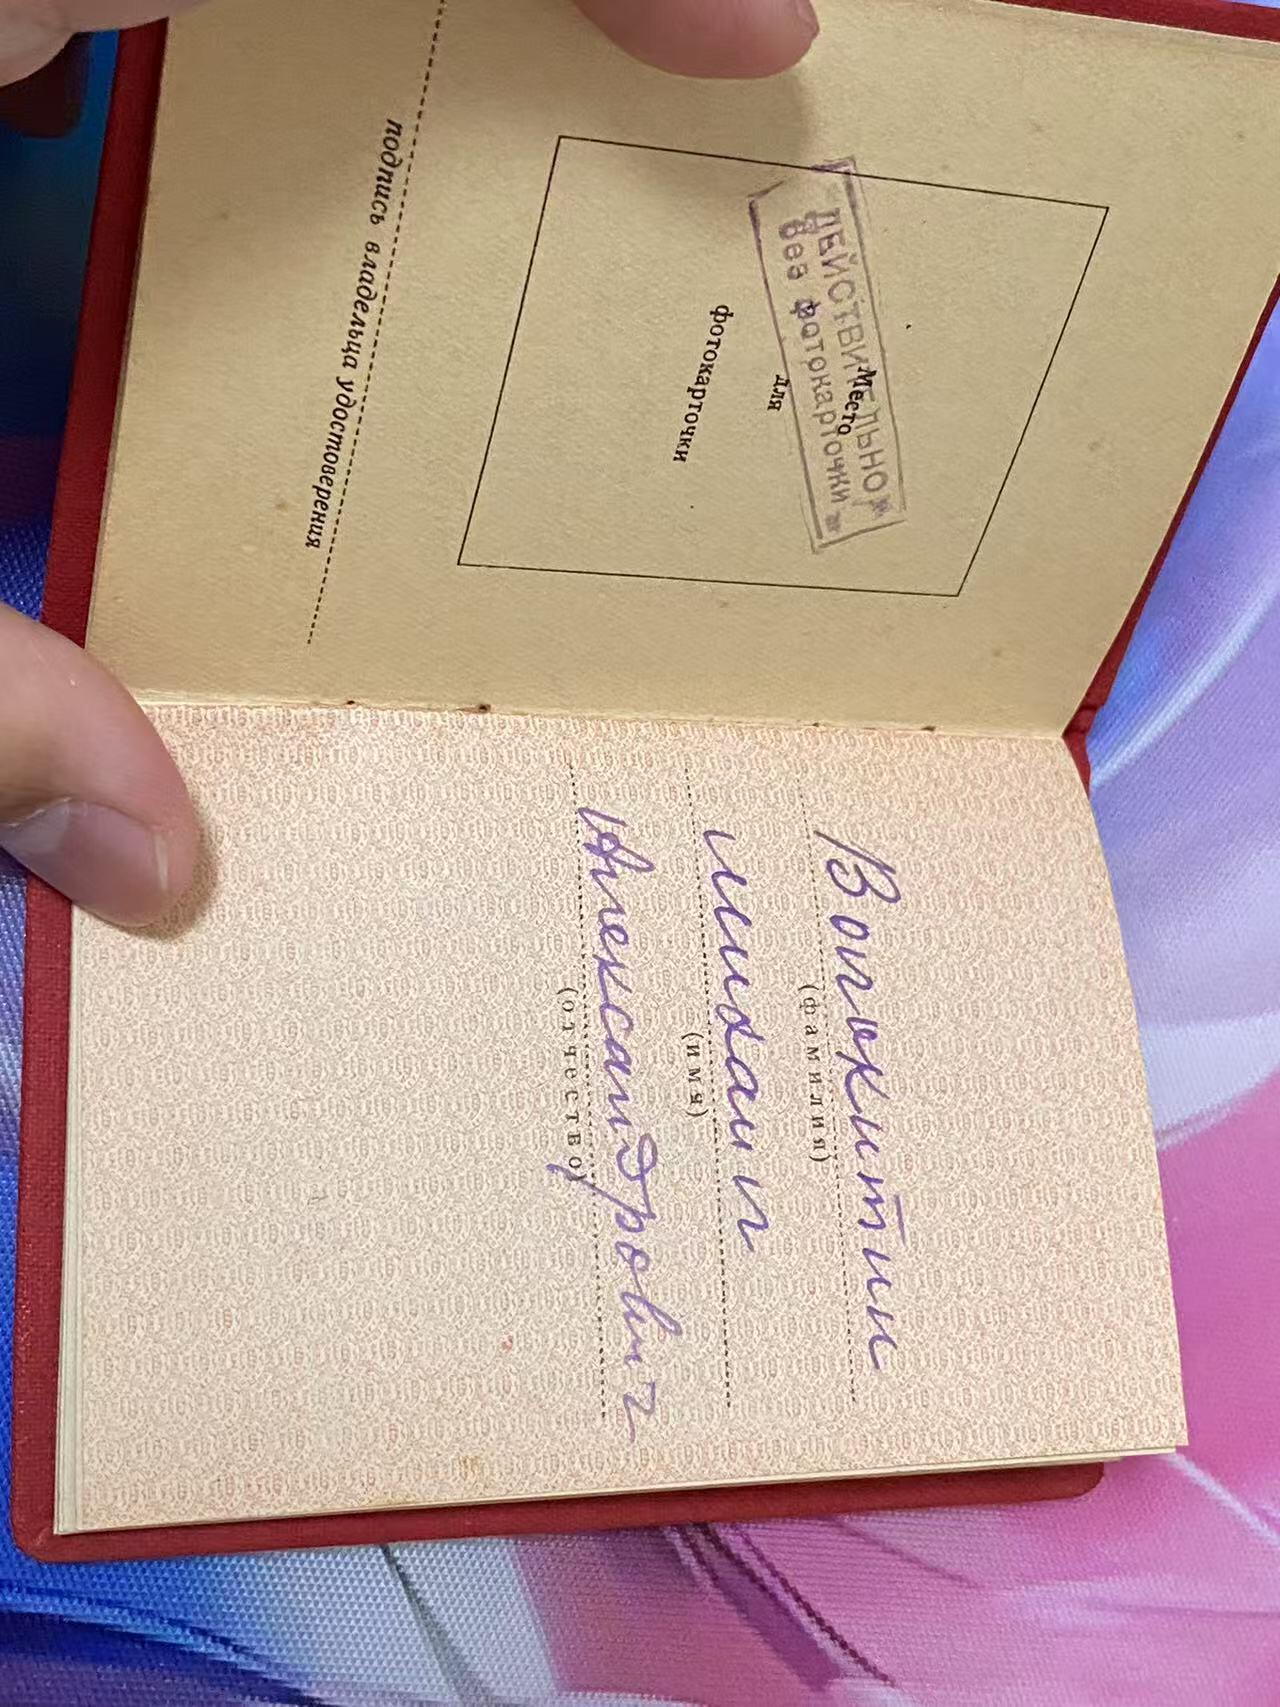 Место
для
фотокарточки
ДЕЙСТВИТЕЛЬНО
без фотокарточки
подпись владельца удостоверения
Волокитин
(фамилия)
Михаил
(имя)
Александрович
(отчество)